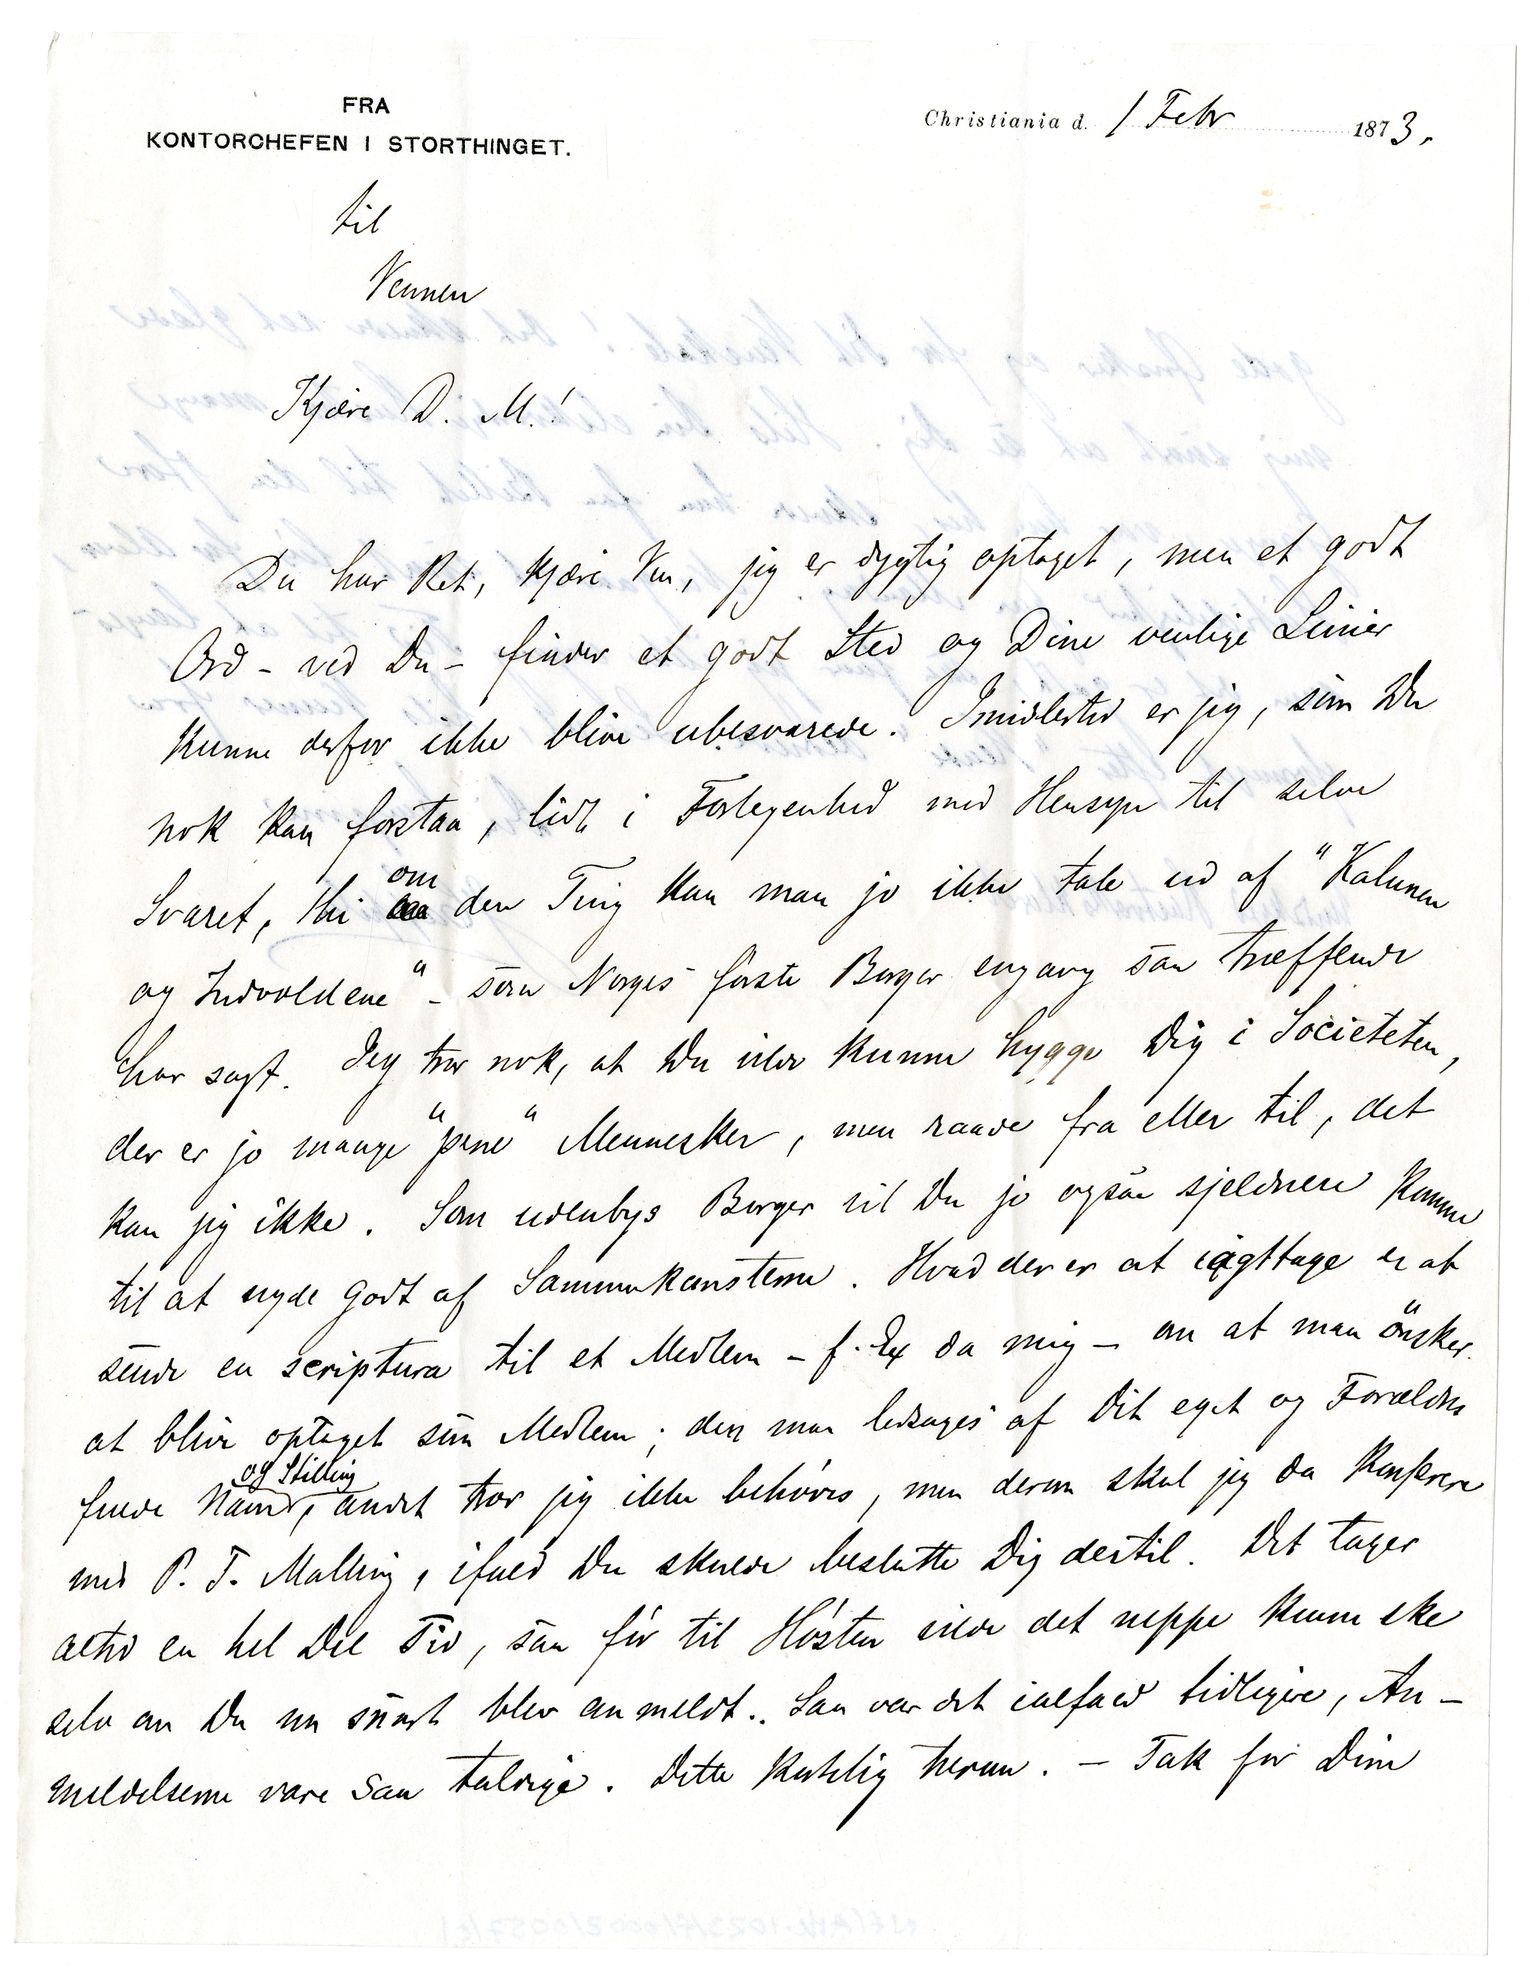 FRA
KONTORCHEFEN I STORTHINGET.
Christiania d. 1 Febr 1873.
til
Vennen
Kjære D. M.!
Du har Ret, kjære Ven, jeg er dygtig optaget, men et godt
Ord – ved Du – finder et godt Sted og Dine venlige Linier
kunne derfor ikke blive ubesvarede. Imidlertid er jeg, som Du
nok kan forstaa, lidt i Forlegenhed med Hensyn til selve
Svaret, thi om den Ting kan man jo ikke tale ud af "Kalunen
og Indvoldene" – som Norges første Borger engang saa træffende
har sagt. Jeg tror nok, at Du vilde kunne hygge Dig i Societeten,
der er jo mange "pene" Mennesker, men raade fra eller til, det
kan jeg ikke. Som udenbys Borger vil Du jo ogsaa sjeldnere komme
til at nyde godt af Sammenkomsterne. Hvad der er at iagttage er at
sende en scriptura til et Medlem – f. Ex da mig – om at man ønsker
at blive optaget som Medlem; den maa ledsages af Dit eget og Forældres
fulde Navn og Stilling, andet tror jeg ikke behøves, men derom skal jeg da konferere
med P. T. Malling, ifald Du skulde beslutte Dig dertil. Det tager
altid en hel Del Tid, saa før til Høsten vilde det neppe kunne ske
selv om Du nu snart blev anmeldt. Saa var det ialfald tidligere, An-
meldelserne vare saa talrige. Dette herom. – Tak for Dine